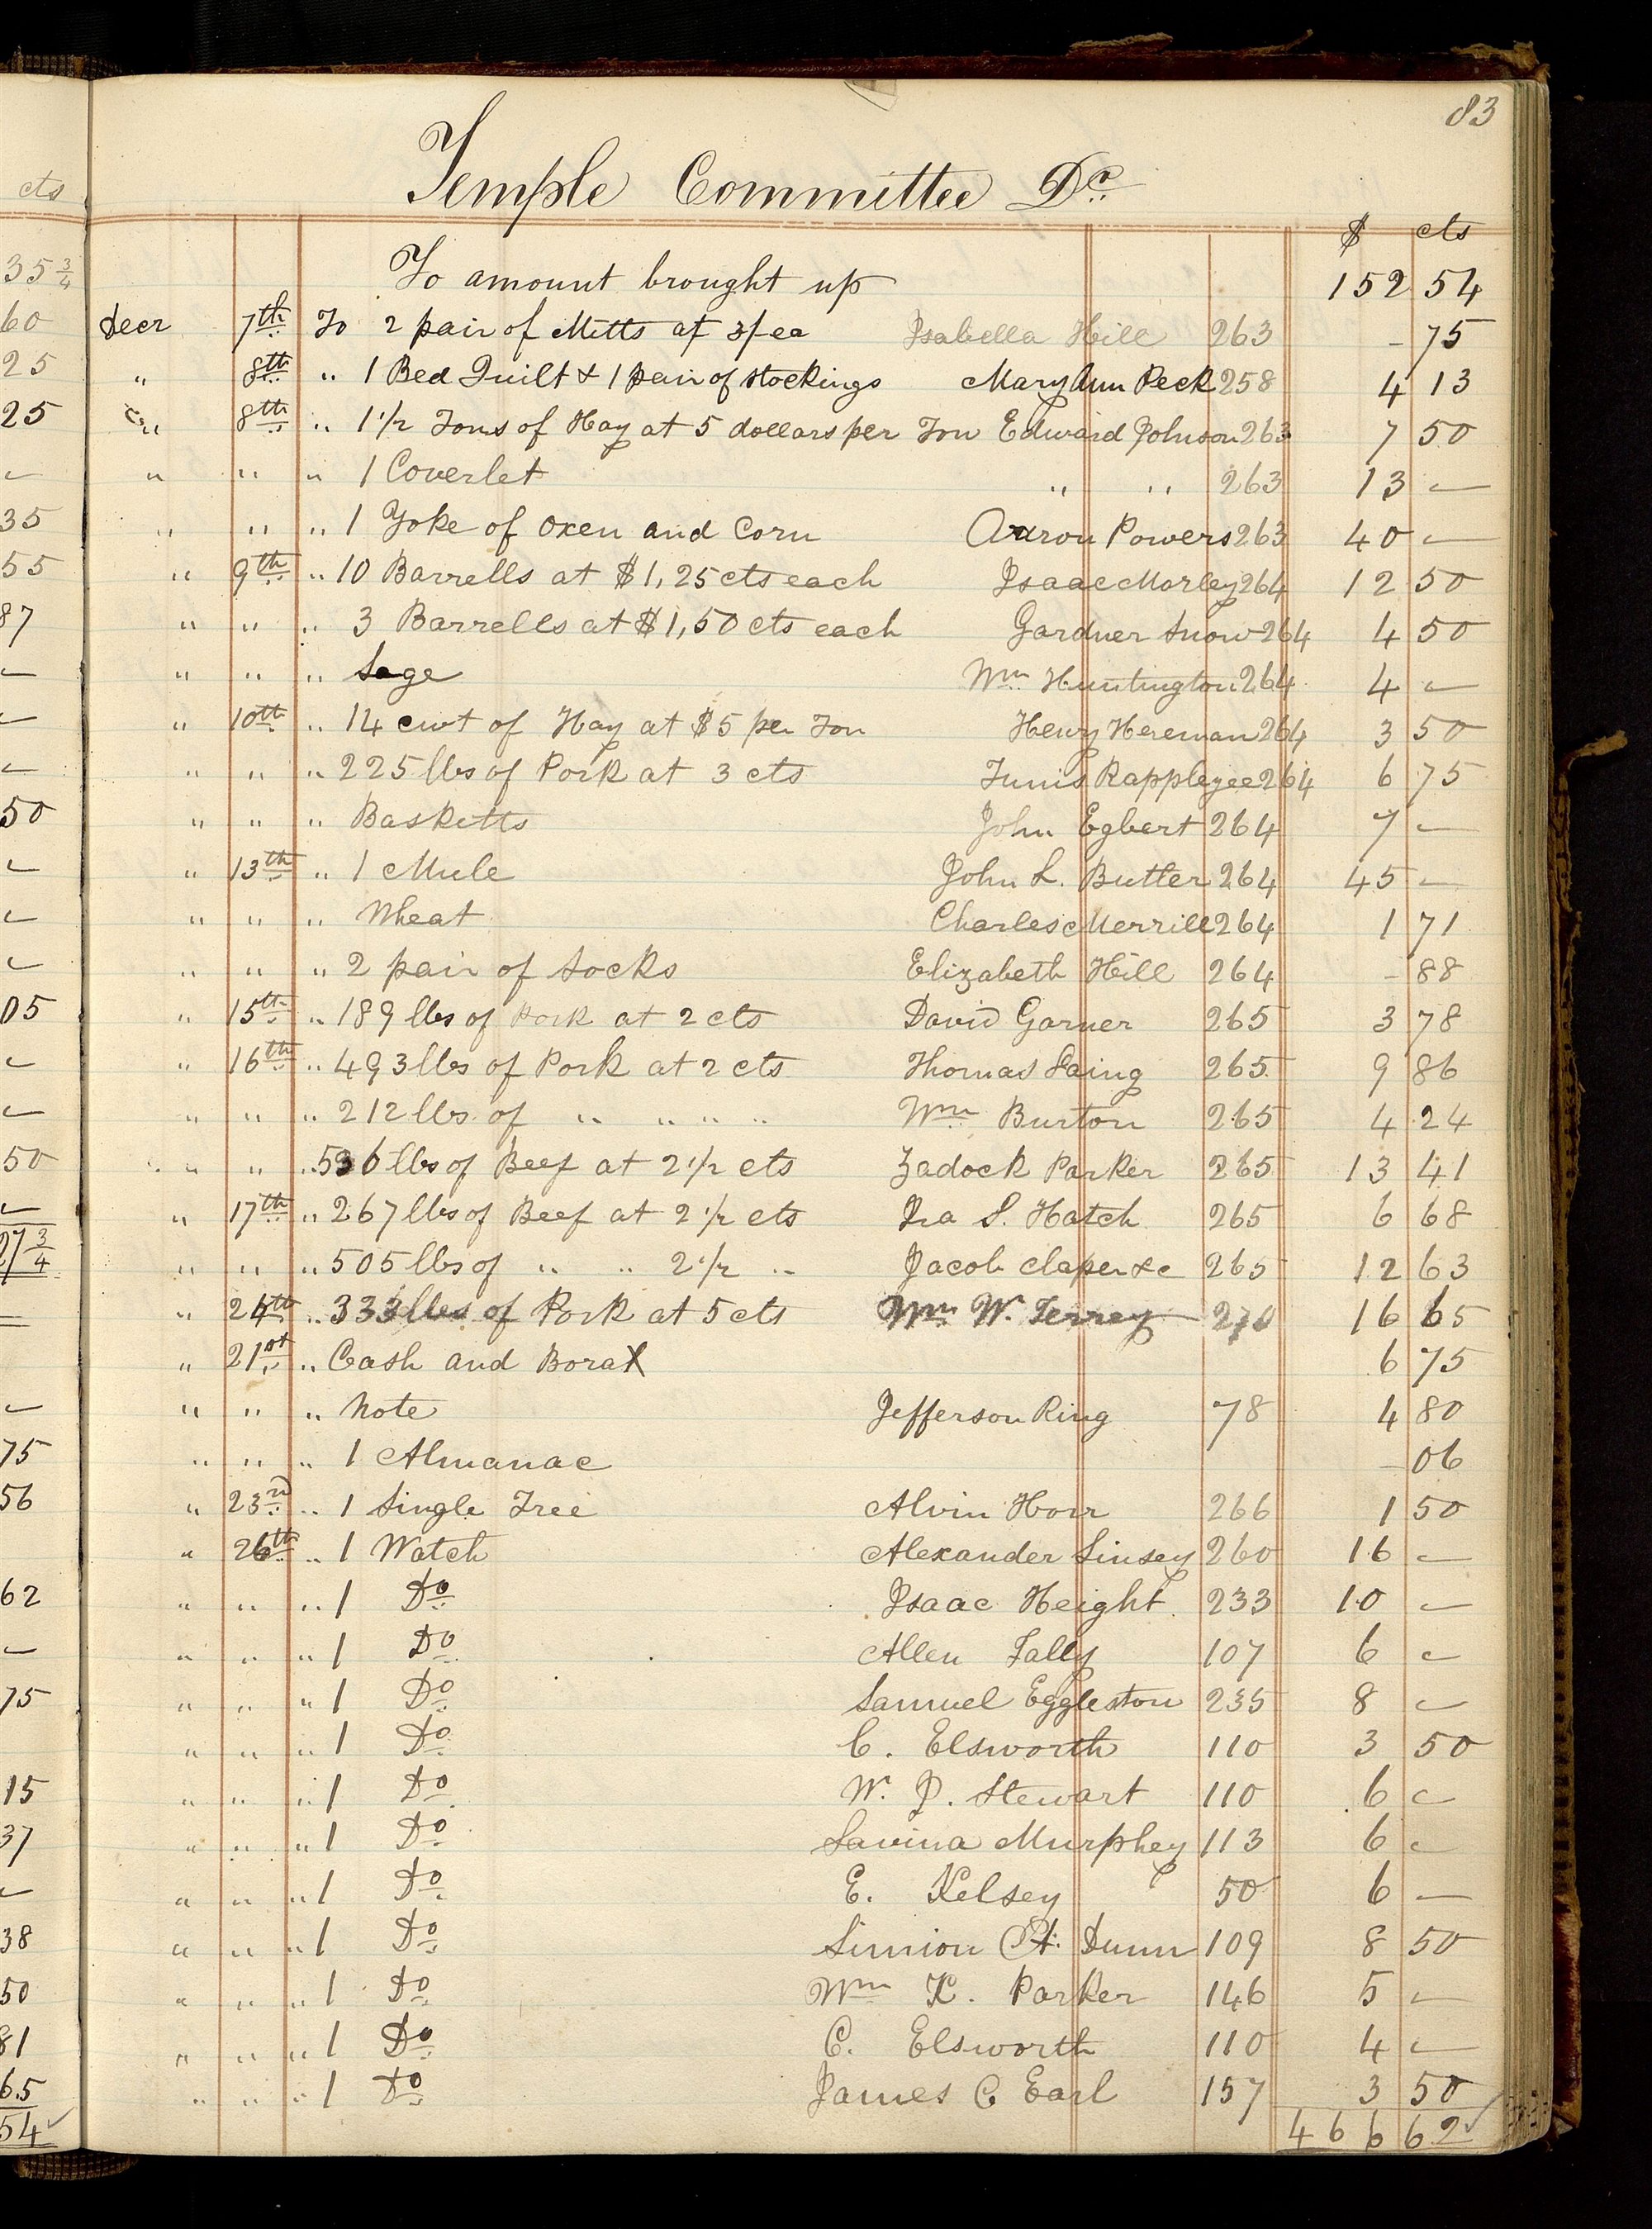 83
cts
Temple Committee Dr.
$ cts
35 3/4 To amount brought up 152 54
60 Decr 7th To 2 pair of Mitts at 3/ ea Isabella Hill 263 - 75
25 " 8th " 1 Bed Quilt & 1 pair of Stockings Mary Ann Peck 258 4 13
25 " 8th " 1 1/2 Tons of Hay at 5 dollars per Ton Edward Johnson 263 7 50
— " " " 1 Coverlet " " 263 13 —
35 " " " 1 Yoke of Oxen and Corn Aaron Powers 263 40 —
55 " 9th " 10 Barrells at $1,25 cts each Isaac Morley 264 12 50
87 " " " 3 Barrells at $1,50 cts each Gardner Snow 264 4 50
— " " " Sage Wm Huntington 264 4 —
— " 10th " 14 cwt of Hay at $5 per Ton Henry Hereman 264 3 50
— " " " 225 lbs of Pork at 3 cts Tunis Rappleyee 264 6 75
50 " " " Basketts John Egbert 264 7 —
— " 13th " 1 Mule John L. Butler 264 45 —
— " " " Wheat Charles Merrill 264 1 71
— " " " 2 pair of Socks Elizabeth Hill 264 - 88
05 " 15th " 189 lbs of Pork at 2 cts David Garner 265 3 78
— " 16th " 493 lbs of Pork at 2 cts Thomas Laing 265 9 86
— " " " 212 lbs of " " " " Wm Burton 265 4 24
50 " " " 536 lbs of Beef at 2 1/2 cts Zadock Parker 265 13 41
— " 17th " 267 lbs of Beef at 2 1/2 cts Ira S. Hatch 265 6 68
27 3/4 " " " 505 lbs of " " 2 1/2 " Jacob Claper &c 265 12 63
" 24th " 333 lbs of Pork at 5 cts Wm W. Terrey 270 16 65
" 21st " Cash and Borax 6 75
— " " " Note Jefferson Ring 78 4 80
75 " " " 1 Almanac - 06
56 " 23rd " 1 Single Tree Alvin Horr 266 1 50
" 26th " 1 Watch Alexander Linsey 260 16 —
62 " " " 1 Do Isaac Height 233 10 —
— " " " 1 Do Allen Tally 107 6 —
75 " " " 1 Do Samuel Eggleston 235 8 —
" " " 1 Do C. Elsworth 110 3 50
15 " " " 1 Do W. J. Stewart 110 6 —
37 " " " 1 Do Savina Murphey 113 6 —
— " " " 1 Do E. Kelsey 50 6 —
38 " " " 1 Do Simion A. Dunn 109 8 50
50 " " " 1 Do Wm K. Parker 146 5 —
81 " " " 1 Do C. Elsworth 110 4 —
65 " " " 1 Do James C Earl 157 3 50
54 466 62